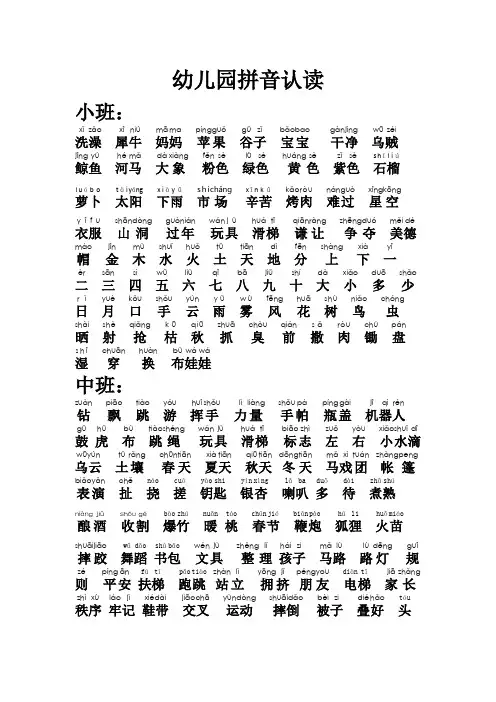 幼儿园拼音认读
小班：
xǐ zǎo xī niú mā ma píngguǒ gǔ zi bǎobao gānjìng wū zéi
洗澡 犀牛 妈妈 苹果 谷子 宝宝 干净 乌贼
jīng yú hé mǎ dà xiàng fěn sè lǜ sè huáng sè zǐ sè shí liú
鲸鱼 河马 大象 粉色 绿色 黄色 紫色 石榴
luó bo tài yáng xià yǔ shìchǎng xīn kǔ kǎoròu nánguò xīngkōng
萝卜 太阳 下雨 市场 辛苦 烤肉 难过 星空
yī fu shāndòng guònián wán jù huá tī qiānràng zhēngduó měi dé
衣服 山洞 过年 玩具 滑梯 谦让 争夺 美德
mào jīn mù shuǐ huǒ tǔ tiān dì fēn shàng xià yī
帽 金 木 水 火 土 天 地 分 上 下 一
èr sān sì wǔ liù qī bā jiǔ shí dà xiǎo duō shǎo
二 三 四 五 六 七 八 九 十 大 小 多 少
rì yuè kǒu shǒu yún yǔ wù fēng huā shù niǎo chóng
日 月 口 手 云 雨 雾 风 花 树 鸟 虫
shài shè qiǎng kū qiū zhuā chòu qián sā ròu chú pán
晒 射 抢 枯 秋 抓 臭 前 撒 肉 锄 盘
shī chuān huàn bù wá wá
湿 穿 换 布娃娃
中班：
zuān piāo tiào yóu huīshǒu lì liàng shǒu pà pínggài jī qì rén
钻 飘 跳 游 挥手 力量 手帕 瓶盖 机器人
gǔ hǔ bù tiàoshéng wán jù huá tī biāo zhì zuǒ yòu xiǎoshuǐ dī
鼓 虎 布 跳绳 玩具 滑梯 标志 左 右 小水滴
wūyún tǔ rǎng chūntiān xià tiān qiū tiān dōngtiān mǎ xì tuán zhàngpeng
乌云 土壤 春天 夏天 秋天 冬天 马戏团 帐篷
biǎoyǎn chě náo cuō yào shi yínxìng lǎ ba duō dài zhǔ shú
表演 扯 挠 搓 钥匙 银杏 喇叭 多 待 煮熟
niàng jiǔ shōu gē bào zhú nuǎn táo chūn jié biānpào hú li huǒmiáo
酿酒 收割 爆竹 暖 桃 春节 鞭炮 狐狸 火苗
shuāijiāo wǔ dǎo shū bāo wén jù zhěng lǐ hái zi mǎ lù lù dēng guī
摔跤 舞蹈 书包 文具 整理 孩子 马路 路灯 规
zé píng ān fú tī pǎo tiào zhàn lì yōng jǐ péngyou diàn tī jiā zhǎng
则 平安 扶梯 跑跳 站立 拥挤 朋友 电梯 家长
zhì xù láo jì xiédài jiāochā yùndòng shuāidǎo bèi zi diéhǎo tóu
秩序 牢记 鞋带 交叉 运动 摔倒 被子 叠好 头